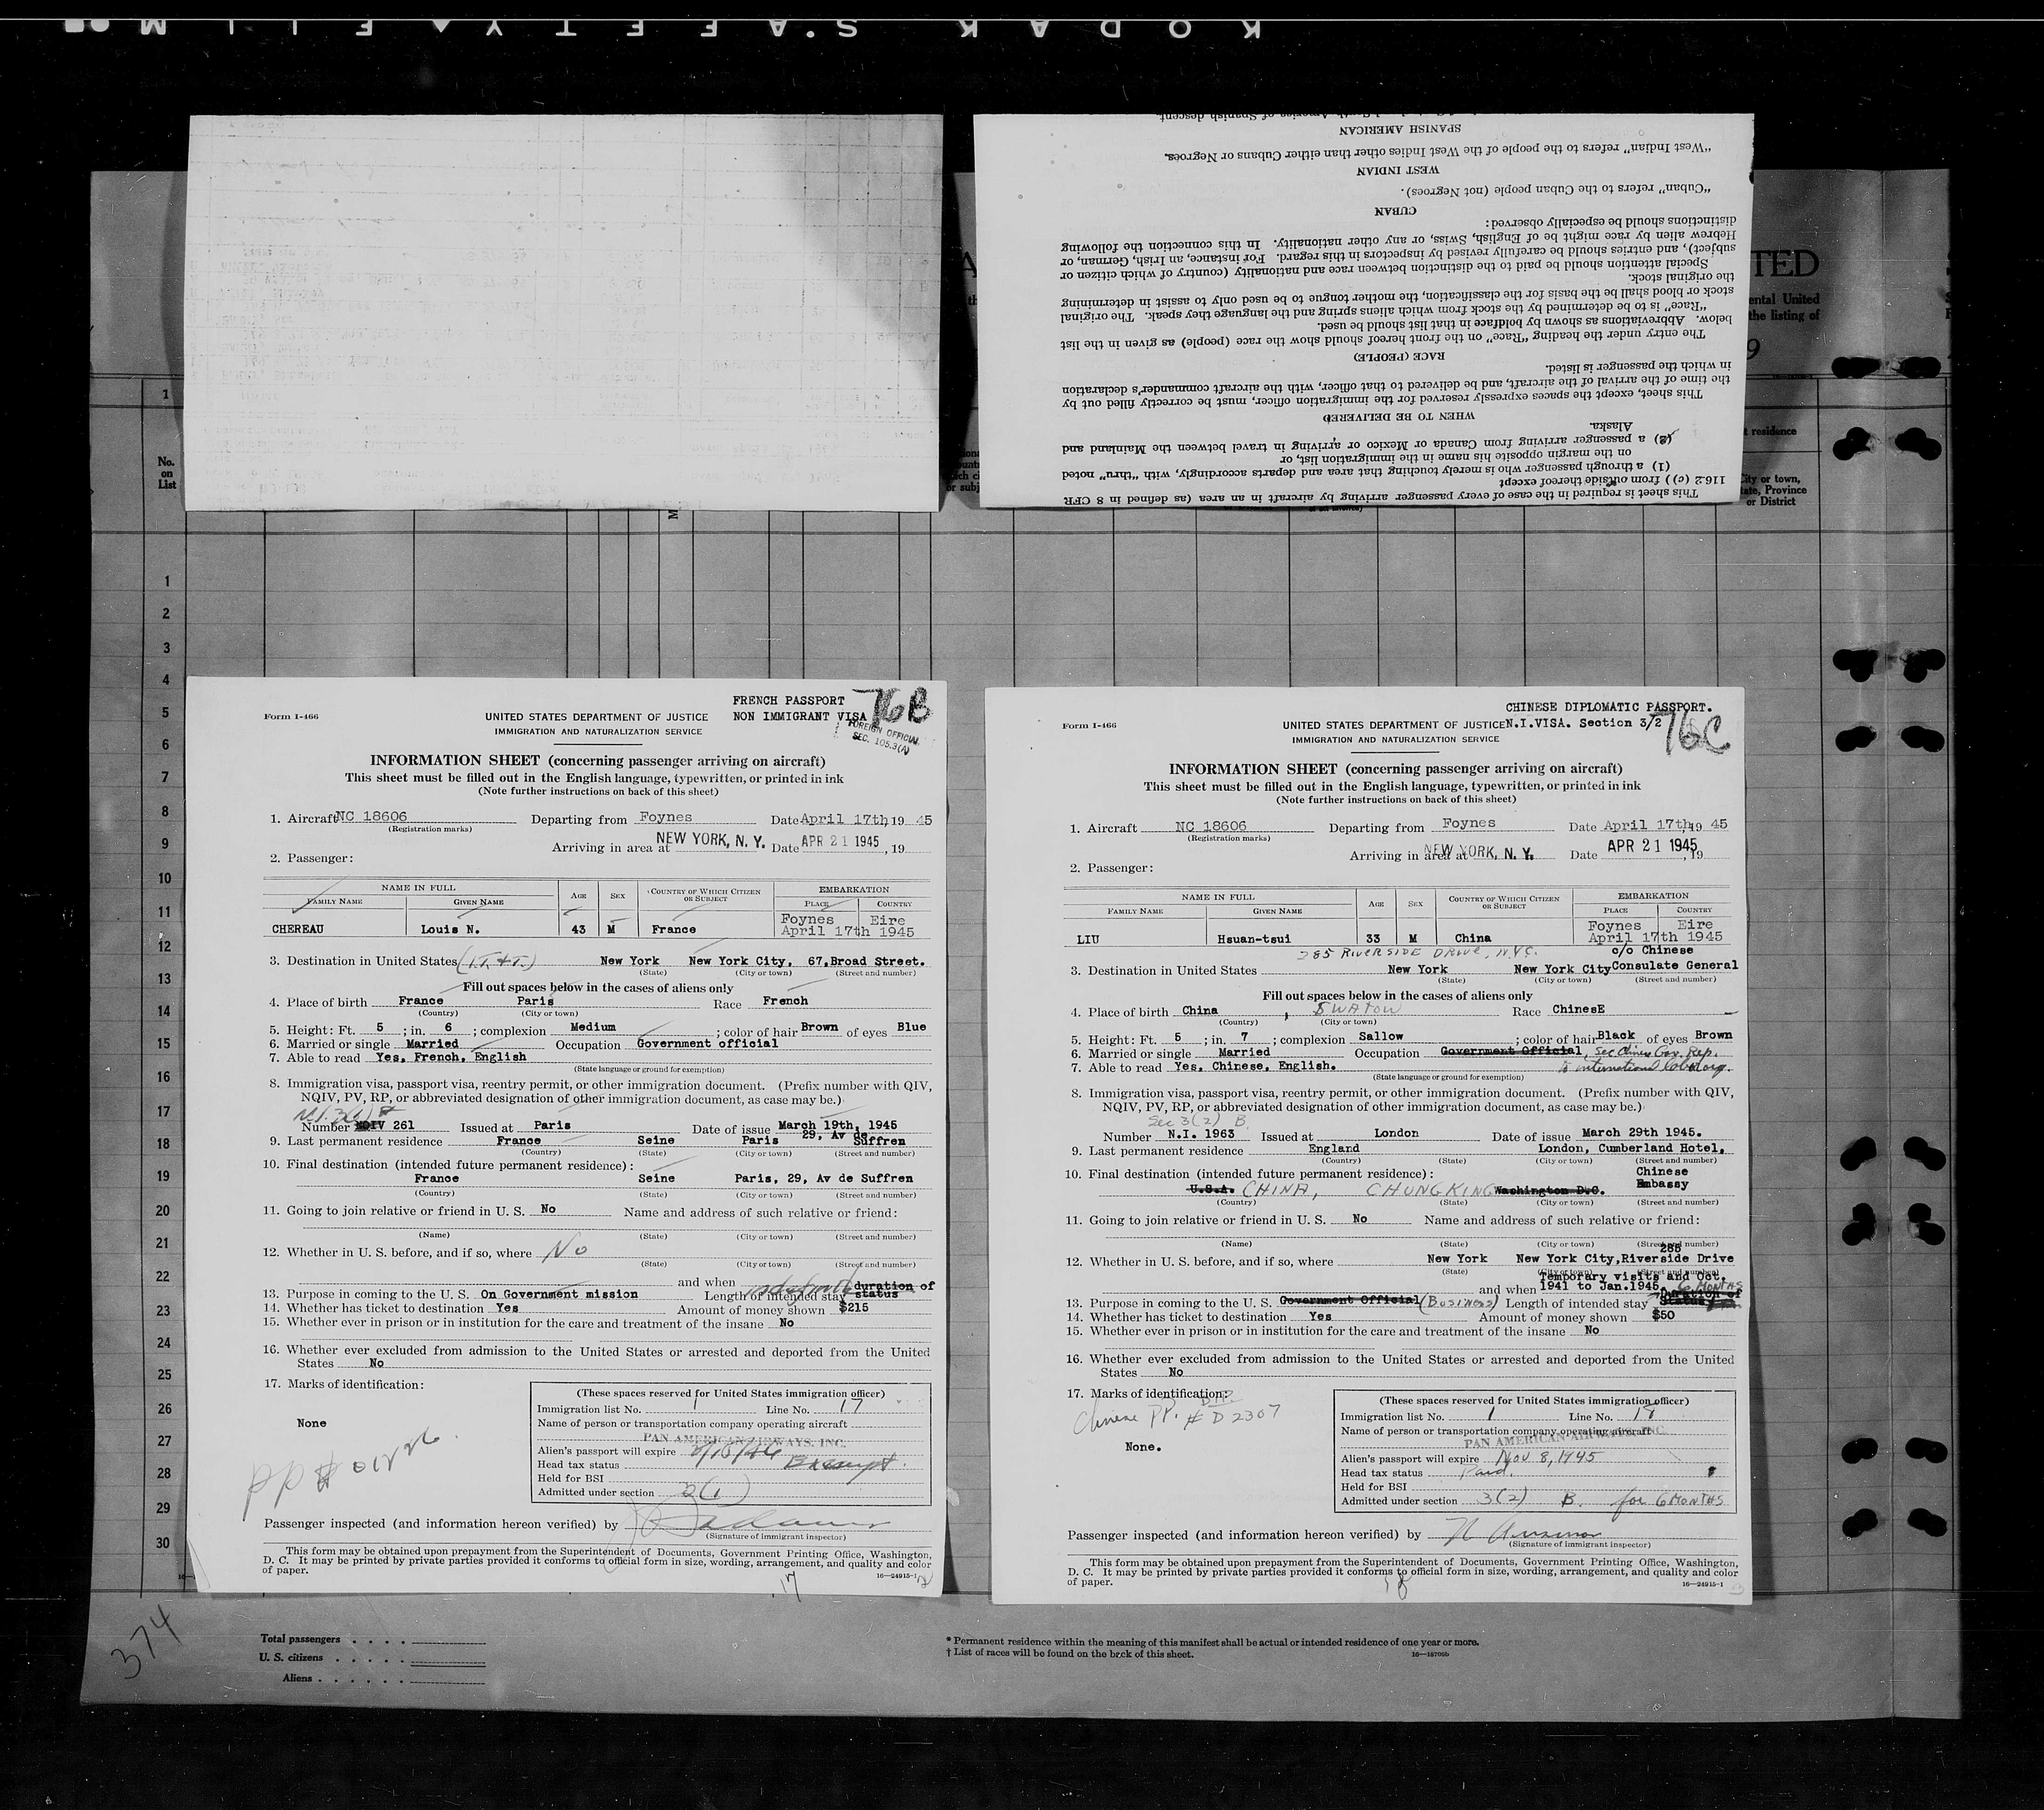 KODAK SAFETY FILM
descent.
SPANISH AMERICAN
"West Indian" refers to the people of the West Indies other than either Cubans or Negroes.
WEST INDIAN
"Cuban" refers to the Cuban people (not Negroes).
CUBAN
distinctions should be especially observed:
Hebrew alien by race might be of English, Swiss, or any other nationality. In this connection the following
subject), and entries should be carefully revised by inspectors in this regard. For instance, an Irish, German, or
Special attention should be paid to the distinction between race and nationality (country of which citizen or
the original stock.
stock or blood shall be the basis for the classification, the mother tongue to be used only to assist in determining
"Race" is to be determined by the stock from which aliens spring and the language they speak. The original
below. Abbreviations as shown by boldface in that list should be used.
The entry under the heading "Race" on the front hereof should show the race (people) as given in the list
RACE (PEOPLE)
in which the passenger is listed.
the time of the arrival of the aircraft, and be delivered to that officer, with the aircraft commander's declaration
This sheet, except the spaces expressly reserved for the immigration officer, must be correctly filled out by
WHEN TO BE DELIVERED
Alaska.
(2) a passenger arriving from Canada or Mexico or arriving in travel between the Mainland and
on the margin opposite his name in the immigration list, or
(1) a through passenger who is merely touching that area and departs accordingly, with "thru" noted
116.2 (c) ) from outside thereof except
This sheet is required in the case of every passenger arriving by aircraft in an area (as defined in 8 CFR
TED
ental United
the listing of
9
residence
City or town,
ate, Province
or District
No.
on
List
1
1
2
3
4
5
6
7
8
9
10
11
12
13
14
15
16
17
18
19
20
21
22
23
24
25
26
27
28
29
30
FRENCH PASSPORT
NON IMMIGRANT VISA
76B
FOREIGN OFFICIAL
SEC. 105.3(A)
Form I-466
UNITED STATES DEPARTMENT OF JUSTICE
IMMIGRATION AND NATURALIZATION SERVICE
INFORMATION SHEET (concerning passenger arriving on aircraft)
This sheet must be filled out in the English language, typewritten, or printed in ink
(Note further instructions on back of this sheet)
1. Aircraft NC 18606 Departing from Foynes Date April 17th, 19 45
(Registration marks)
Arriving in area at NEW YORK, N. Y. Date APR 21 1945, 19
2. Passenger:
NAME IN FULL AGE SEX COUNTRY OF WHICH CITIZEN OR SUBJECT EMBARKATION
FAMILY NAME GIVEN NAME PLACE COUNTRY
Foynes Eire
CHEREAU Louis N. 43 M France April 17th 1945
3. Destination in United States (I.T.&T.) New York New York City, 67,Broad Street.
(State) (City or town) (Street and number)
Fill out spaces below in the cases of aliens only
4. Place of birth France Paris Race French
(Country) (City or town)
5. Height: Ft. 5 ; in. 6 ; complexion Medium ; color of hair Brown of eyes Blue
6. Married or single Married Occupation Government official
7. Able to read Yes, French, English
(State language or ground for exemption)
8. Immigration visa, passport visa, reentry permit, or other immigration document. (Prefix number with QIV,
NQIV, PV, RP, or abbreviated designation of other immigration document, as case may be.)
N.I. 3(1) #
Number NQIV 261 Issued at Paris Date of issue March 19th, 1945
29, Av de
9. Last permanent residence France Seine Paris Suffren
(Country) (State) (City or town) (Street and number)
10. Final destination (intended future permanent residence):
France Seine Paris, 29, Av de Suffren
(Country) (State) (City or town) (Street and number)
11. Going to join relative or friend in U. S. No Name and address of such relative or friend:
(Name) (State) (City or town) (Street and number)
12. Whether in U. S. before, and if so, where No
(State) (City or town) (Street and number)
and when duration of
13. Purpose in coming to the U. S. On Government mission Length of intended stay status
14. Whether has ticket to destination Yes Amount of money shown $215
15. Whether ever in prison or in institution for the care and treatment of the insane No
16. Whether ever excluded from admission to the United States or arrested and deported from the United
States No
17. Marks of identification:
None
PP # 01226
(These spaces reserved for United States immigration officer)
Immigration list No. 1 Line No. 17
Name of person or transportation company operating aircraft
PAN AMERICAN AIRWAYS, INC.
Alien's passport will expire 2/15/46
Head tax status Exempt.
Held for BSI
Admitted under section 3(1)
Passenger inspected (and information hereon verified) by
(Signature of immigrant inspector)
This form may be obtained upon prepayment from the Superintendent of Documents, Government Printing Office, Washington,
D. C. It may be printed by private parties provided it conforms to official form in size, wording, arrangement, and quality and color
of paper.
16—24915-1
17
CHINESE DIPLOMATIC PASSPORT.
N.I.VISA. Section 3/2
76C
Form I-466
UNITED STATES DEPARTMENT OF JUSTICE
IMMIGRATION AND NATURALIZATION SERVICE
INFORMATION SHEET (concerning passenger arriving on aircraft)
This sheet must be filled out in the English language, typewritten, or printed in ink
(Note further instructions on back of this sheet)
1. Aircraft NC 18606 Departing from Foynes Date April 17th, 19 45
(Registration marks)
Arriving in area at NEW YORK, N. Y. Date APR 21 1945, 19
2. Passenger:
NAME IN FULL AGE SEX COUNTRY OF WHICH CITIZEN OR SUBJECT EMBARKATION
FAMILY NAME GIVEN NAME PLACE COUNTRY
Foynes Eire
LIU Hsuan-tsui 33 M China April 17th 1945
285 RIVERSIDE DRIVE, N.Y.C. c/o Chinese
3. Destination in United States New York New York City Consulate General
(State) (City or town) (Street and number)
Fill out spaces below in the cases of aliens only
4. Place of birth China, SWATOW Race ChinesE
(Country) (City or town)
5. Height: Ft. 5 ; in. 7 ; complexion Sallow ; color of hair Black of eyes Brown
6. Married or single Married Occupation Government Official, Sec Chinese Gov. Rep.
7. Able to read Yes, Chinese, English. to international labor org.
(State language or ground for exemption)
8. Immigration visa, passport visa, reentry permit, or other immigration document. (Prefix number with QIV,
NQIV, PV, RP, or abbreviated designation of other immigration document, as case may be.)
Sec 3(2) B.
Number N.I. 1963 Issued at London Date of issue March 29th 1945.
9. Last permanent residence England London, Cumberland Hotel,
(Country) (State) (City or town) (Street and number)
10. Final destination (intended future permanent residence): Chinese
U.S.A. CHINA, CHUNGKING Washington D.C. Embassy
(Country) (State) (City or town) (Street and number)
11. Going to join relative or friend in U. S. No Name and address of such relative or friend:
(Name) (State) (City or town) (Street and number)
285
12. Whether in U. S. before, and if so, where New York New York City,Riverside Drive
(State) (City or town) (Street and number)
Temporary visits and Oct.
and when 1941 to Jan.1945. 6 MONTHS
Duration of
13. Purpose in coming to the U. S. Government Official (BUSINESS) Length of intended stay Status
14. Whether has ticket to destination Yes Amount of money shown $50
15. Whether ever in prison or in institution for the care and treatment of the insane No
16. Whether ever excluded from admission to the United States or arrested and deported from the United
States No
17. Marks of identification:
Chinese PP. # D 2307
None.
(These spaces reserved for United States immigration officer)
Immigration list No. 1 Line No. 18
Name of person or transportation company operating aircraft
PAN AMERICAN AIRWAYS, INC.
Alien's passport will expire Nov 8, 1945
Head tax status Paid.
Held for BSI
Admitted under section 3(2) B. for 6 MONTHS
Passenger inspected (and information hereon verified) by
(Signature of immigrant inspector)
This form may be obtained upon prepayment from the Superintendent of Documents, Government Printing Office, Washington,
D. C. It may be printed by private parties provided it conforms to official form in size, wording, arrangement, and quality and color
of paper.
16—24915-1
18
374
Total passengers . . . .
U. S. citizens . . . . .
Aliens . . . . . .
* Permanent residence within the meaning of this manifest shall be actual or intended residence of one year or more.
† List of races will be found on the back of this sheet.
16—18700b